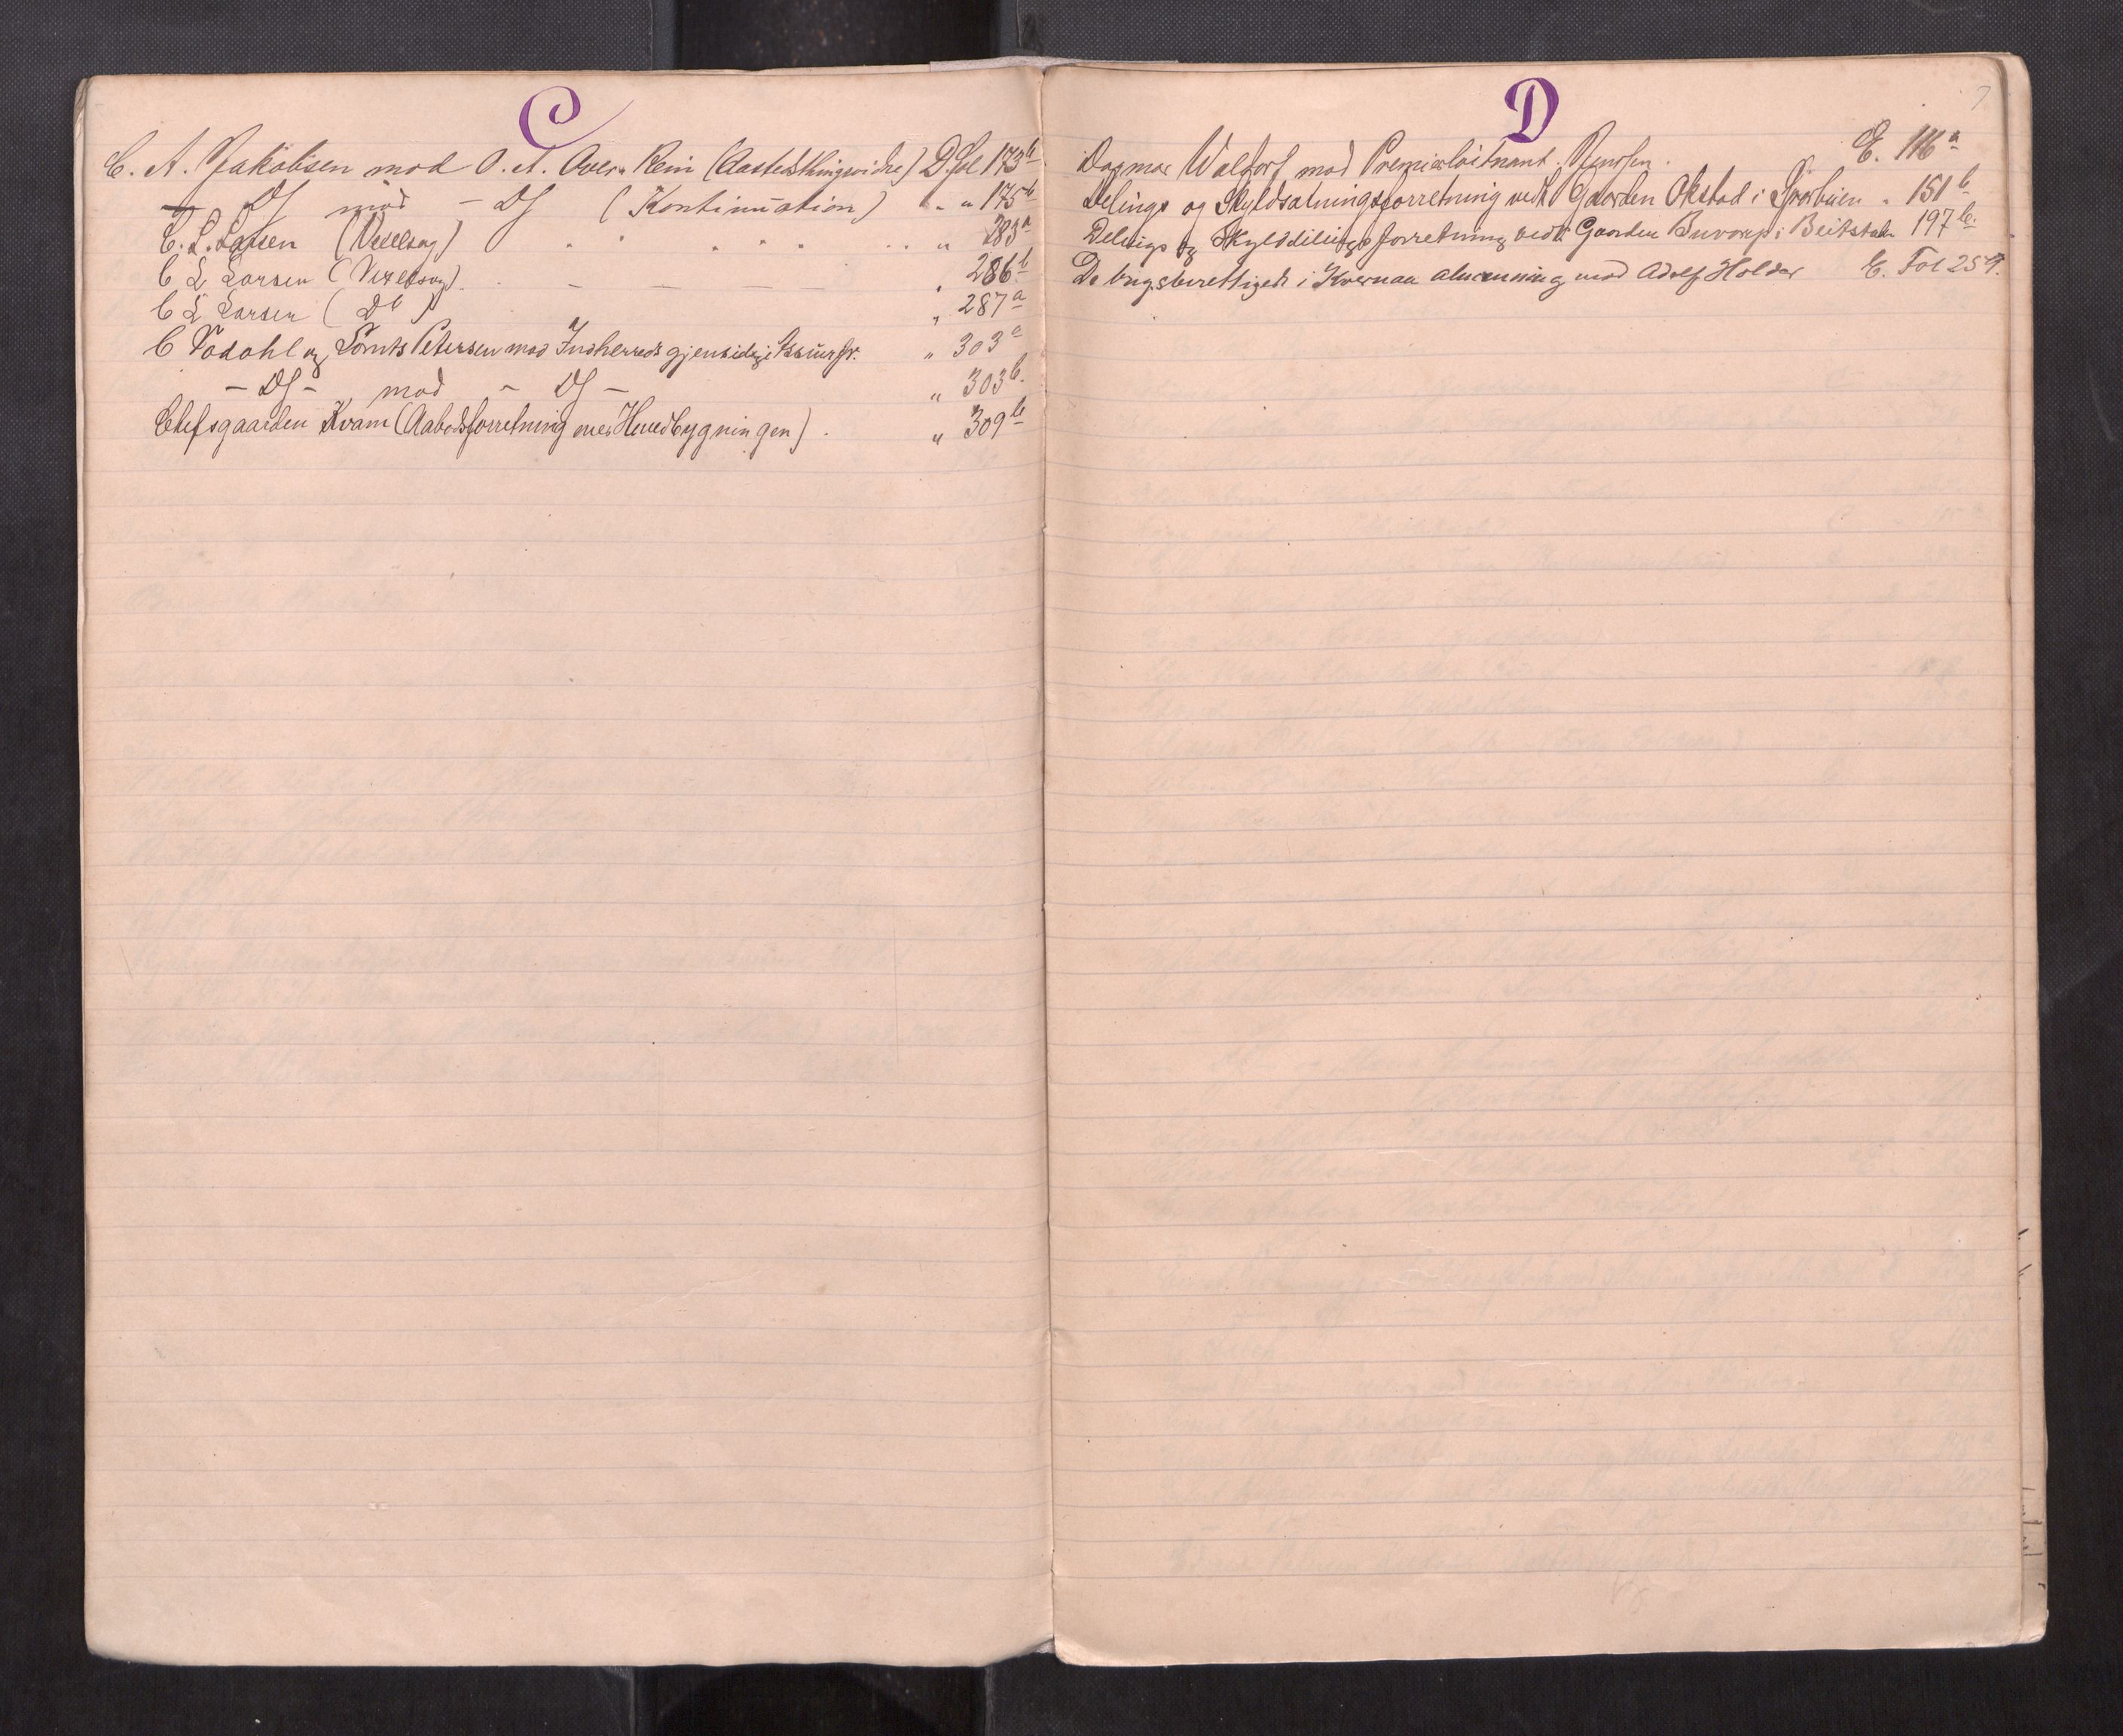 C
C. A. Jakobsen mod O. A. Over-Rein (Aastedsthingvidne) D. Fol 173b
— Ds mod — Ds (Kontinuation) " " 175b
C. L. Larsen (Vexelsag) " 283a
C L Larsen (Vexelsag) " 286b
C L Larsen (Do) " 287a
C Vodahl og Lornts Petersen mod Indherreds gjensidige Assurfr. " 303a
— Ds — mod — Ds — " 303b.
Chefsgaarden Kvam (Aabodsforretning over Hovedbygningen) . " 309b
D
7
Dagmar mod Premierløitnant E. 116a
Delings og Skyldsætningsforretning vedk Gaarden Okstad i " 151b
Delings og Skylddelingsforretning vedk Gaarden i Beitstaden 197b.
De brugsberettigede i Kvernaa almenning mod Adolf Holdar E. Fol 259.